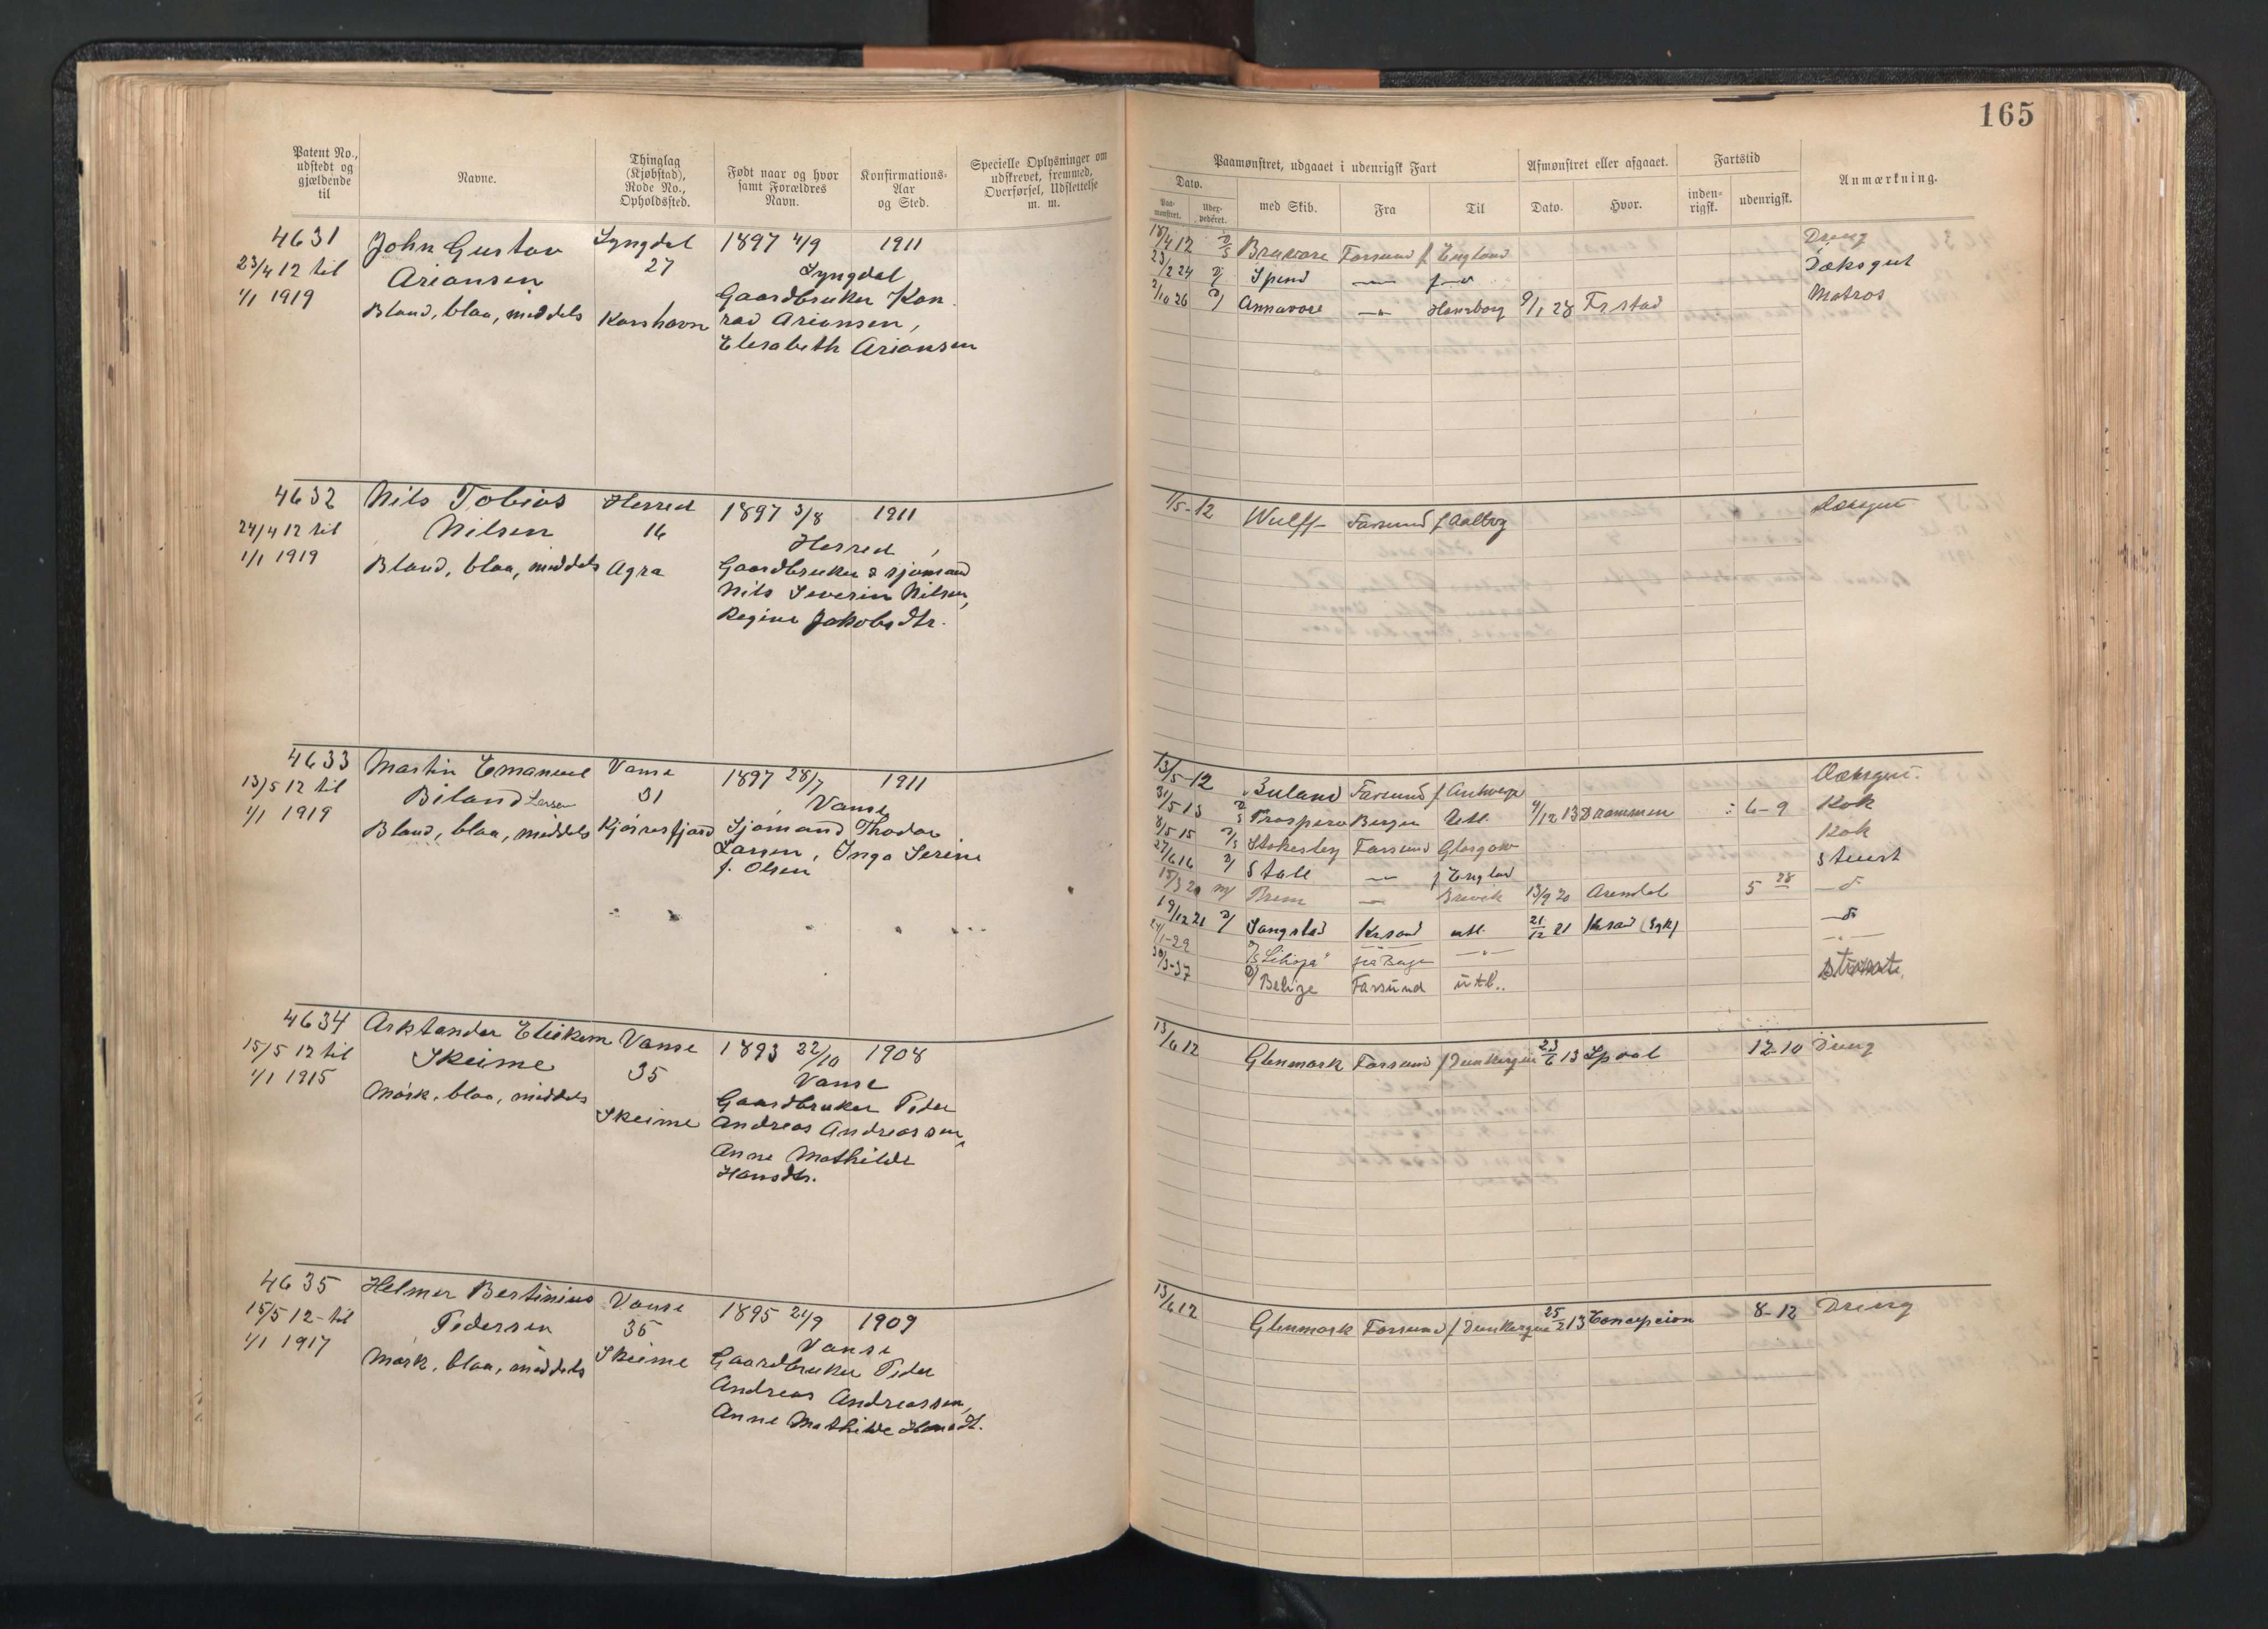 165
Patent No., udstedt og gjældende til
Navne.
Thinglag (Kjøbstad), Rode No., Opholdssted.
Født naar og hvor samt Forældres Navn.
Konfirmations-Aar og Sted.
Specielle Oplysninger om udskrevet, fremmed, Overførsel, Udslettelse m. m.
Paamønstret, udgaaet i udenrigsk Fart
Dato.
Paa-mønstret.
Udex-pederet.
med Skib.
Fra
Til
Afmønstret eller afgaaet.
Dato.
Hvor.
Fartstid
inden-rigsk.
udenrigsk.
Anmærkning.
4631 John Gustav Lyngdal 1897 4/9 1911
23/4 12 til Ariansen 27 Lyngdal
1/1 1919 Gaardbruker Kon
Bland, blaa, middels Korshavn rad Ariansen,
Elisabeth Ariansen
18/4 12 Farsund f England Dreng
23/2 24 Spind Dæksgut
2/10 26 Annavore Hamborg 9/1 28 Fr.stad Matros
4632 Nils Tobias Herred 1897 3/8 1911
24/4 12 til Nilsen 16 Herred
1/1 1919 Bland, blaa, middels Agra Gaardbruker & sjømand
Nils Severin Nilsen,
Regine Jakobsdtr.
1/5-12 Wulff Farsund f Aalborg Dæksgut
4633 Martin Emanuel Vanse 1897 28/7 1911
13/5 12 til Biland Larsen 31 Vanse
1/1 1919 Bland, blaa, middels Kjørresfjord Sjømand Thodor
Larsen, Inga Serine
f. Olsen
13/5-12 Farsund f Antwerp Dæksgut.
31/5 13 Prospero Bergen Utl. 4/12 13 Drammen 6-9 Kok
8/5 15 Stokesley Farsund Glasgow Kok
27/6 16 Stall f England Stuert
18/3 20 Brem Brevik 13/9 20 Arendal 5 28
19/12 21 Sangstad Krsand utl. 21/12 21 Krsand (Syk)
1-29 fra Bergen
30/3-37 Belize Farsund utl..
4634 Arktander Eliekem Vanse 1893 22/10 1908
15/5 12 til Skeime 35 Vanse
1/1 1915 Mørk, blaa, middels Skeime Gaardbruker Peder
Andreas Andreassen,
Anne Mathilde
Hansdtr.
13/6 12 Glenmark Farsund f Dunkerque 23/6 13 12-10 Dreng
4635 Helmer Bertinius Vanse 1895 21/9 1909
15/5 12-til Pedersen 35 Vanse
1/1 1917 Mørk, blaa, middels Skeime Gaardbruker Peder
Andreas Andreassen,
Anne Mathilde Hansdt.
13/6 12 Glenmark Farsund f Dunkerque 25/2 13 Concepcion 8-12 Dreng